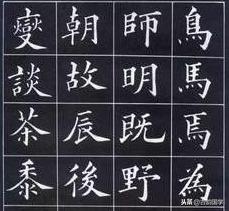 鳥馬焉為
師明既野
朝故辰後
變談茶黍
头条 @古韵国学